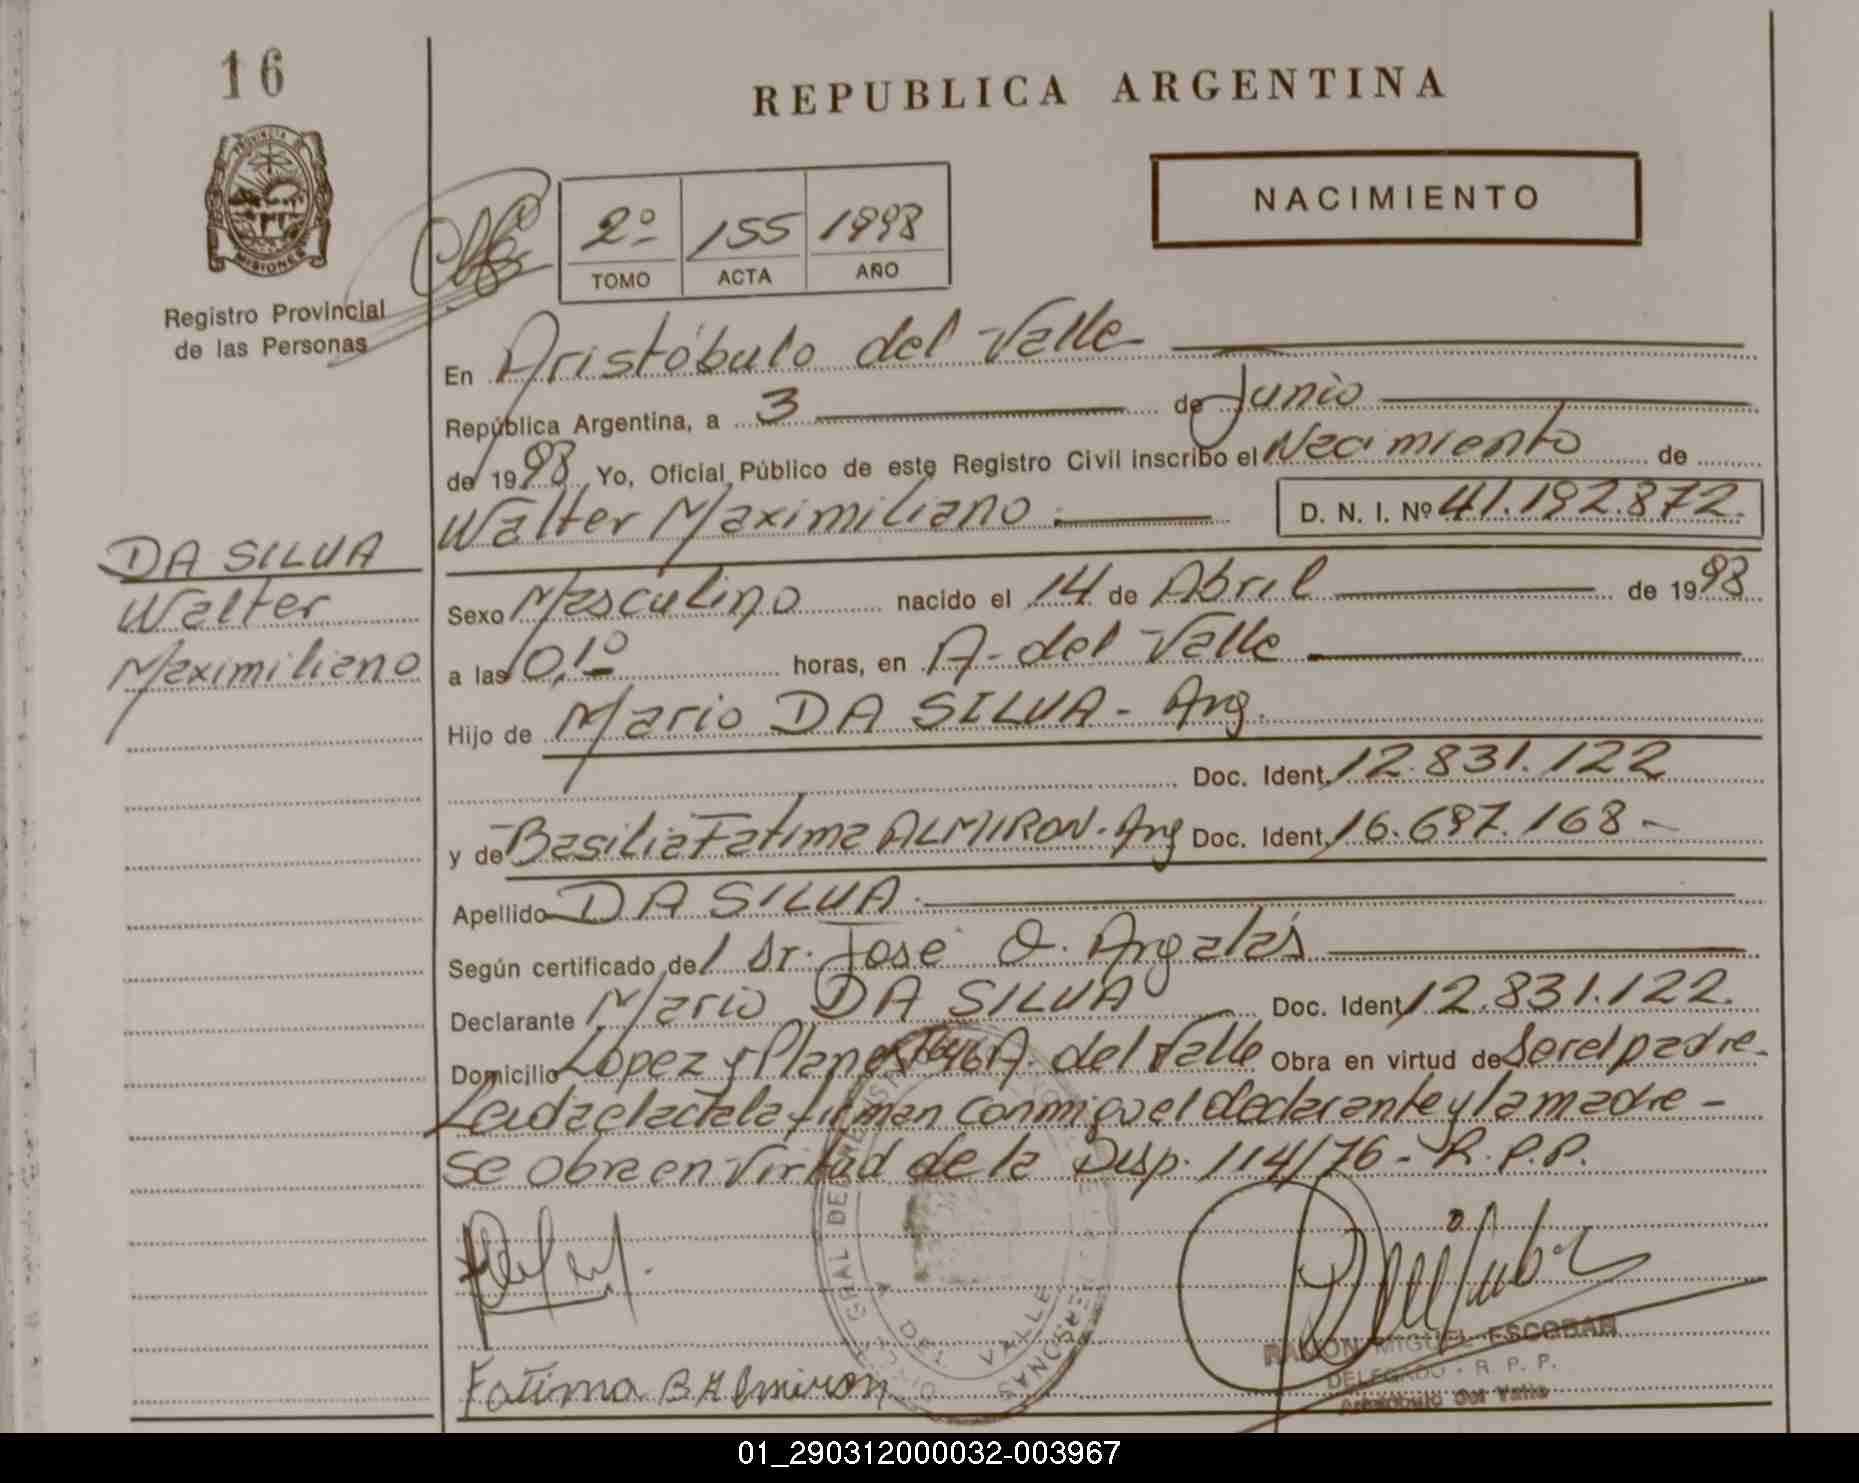 16
REPUBLICA ARGENTINA
NACIMIENTO
PROVINCIA DE
MISIONES
Registro Provincial
de las Personas
2º 155 1998
TOMO ACTA AÑO
En Aristóbulo del Valle
República Argentina, a 3 de Junio
de 1998 Yo, Oficial Público de este Registro Civil inscribo el Nacimiento de
Walter Maximiliano D. N. I. Nº 41.192.872.
DA SILVA
Walter
Maximiliano
Sexo Masculino nacido el 14 de Abril de 1998
a las 0,1º horas, en A. del Valle
Hijo de Mario DA SILVA - Arg.
Doc. Ident. 12.831.122
y de Basilia Fatima ALMIRON. Arg Doc. Ident. 16.697.168 -
Apellido DA SILVA.
Según certificado del Dr. José O. Argalás
Declarante Mario DA SILVA Doc. Ident. 12.831.122.
Domicilio López y Planes A. del Valle Obra en virtud de Ser el padre -
Leída el acta la firman conmigo el declarante y la madre -
Se obra en virtud de la Disp. 114/76 - R.P.P.
Fatima B Almiron
RAMON MIGUEL ESCOBAR
DELEGADO - R. P. P.
Aristóbulo del Valle
01_290312000032-003967